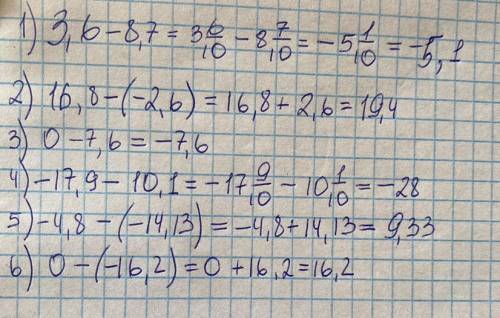 1) 3,6-8,7 = 3 6/10 - 8 7/10 = -5 1/10 = -5,1
2) 16,8-(-2,6) = 16,8+2,6 = 19,4
3) 0-7,6 = -7,6
4) -17,9-10,1 = -17 9/10 - 10 1/10 = -28
5) -4,8-(-14,13) = -4,8+14,13 = 9,33
6) 0-(-16,2) = 0+16,2 = 16,2